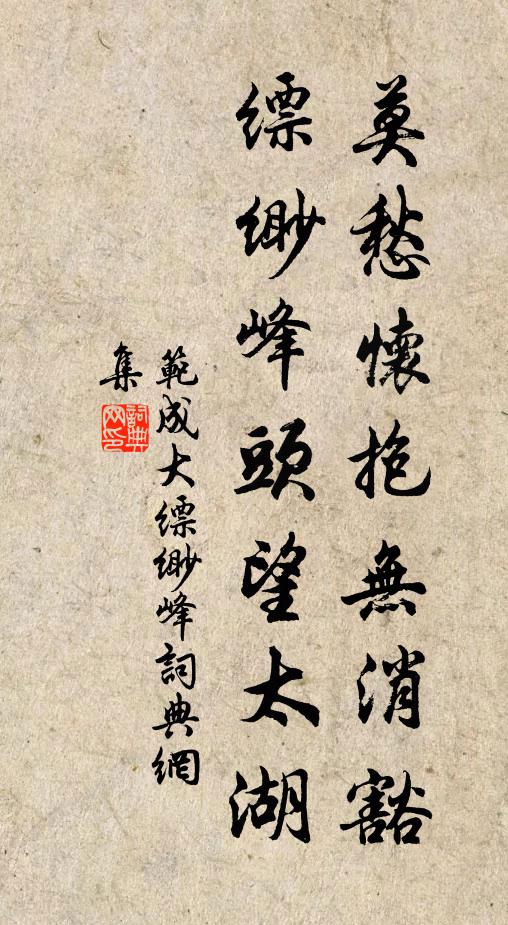 莫愁懷抱無消豁
縹緲峰頭望太湖
範成大縹緲峰詞典網
集
詞典
网印